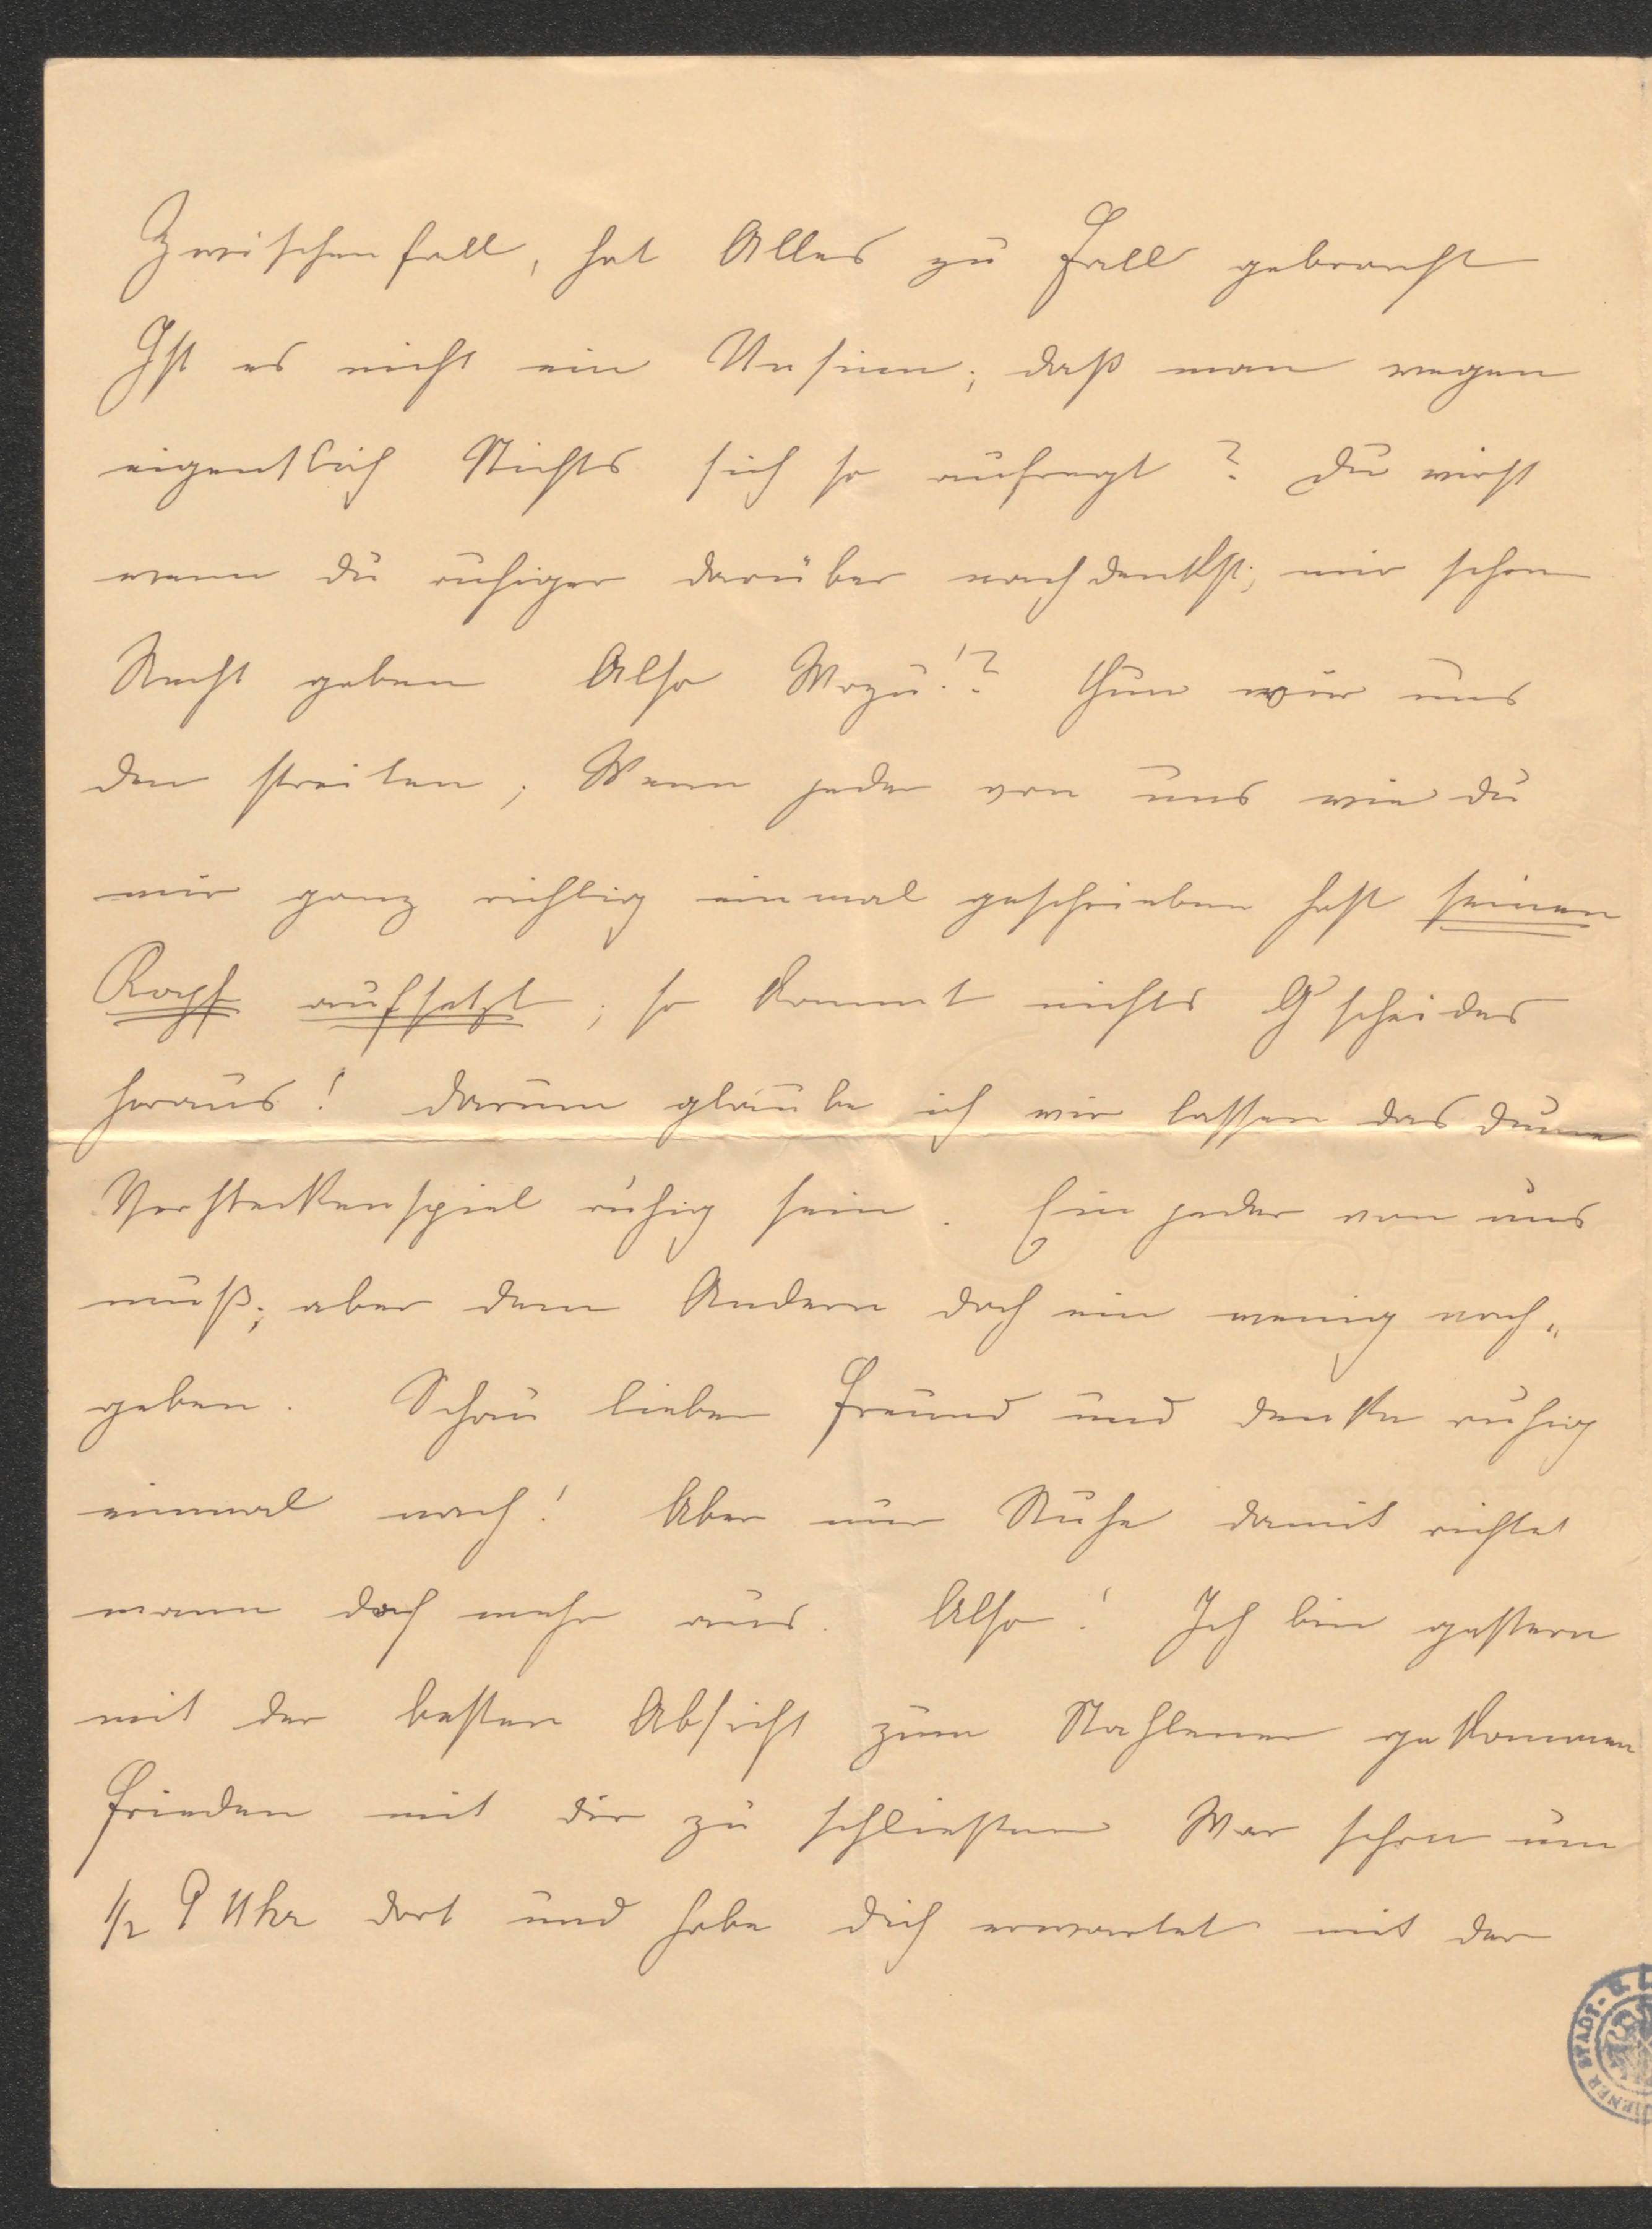 Zwischenfall, hat Alles zu Fall gebracht
Ist es nicht ein Unsinn; daß man wegen
eigentlich Nichts sich so aufregt? Du wirst
wenn du ruhiger darüber nachdenkst; mir schon
Recht geben Also Wozu!? thun wir uns
den streiten; Wenn jeder von uns wie du
mir ganz richtig einmal geschrieben hast seinen
Kopf aufsetzt; so kommt nichts G'scheides
heraus! darum glaube ich wir lassen das dume
Versteckenspiel ruhig sein. Ein jeder von uns
muß; aber dem Andern doch ein wenig nach„
geben. Schau lieber Freund und denke ruhig
einmal nach! Aber nur Ruhe damit richtet
mann doch mehr aus. Also! Ich bin gestern
mit der besten Absicht zum gekommen
Frieden mit dir zu schließen War schon um
1/2 9 Uhr dort und habe dich erwartet mit der
WIENER STADT- U. L